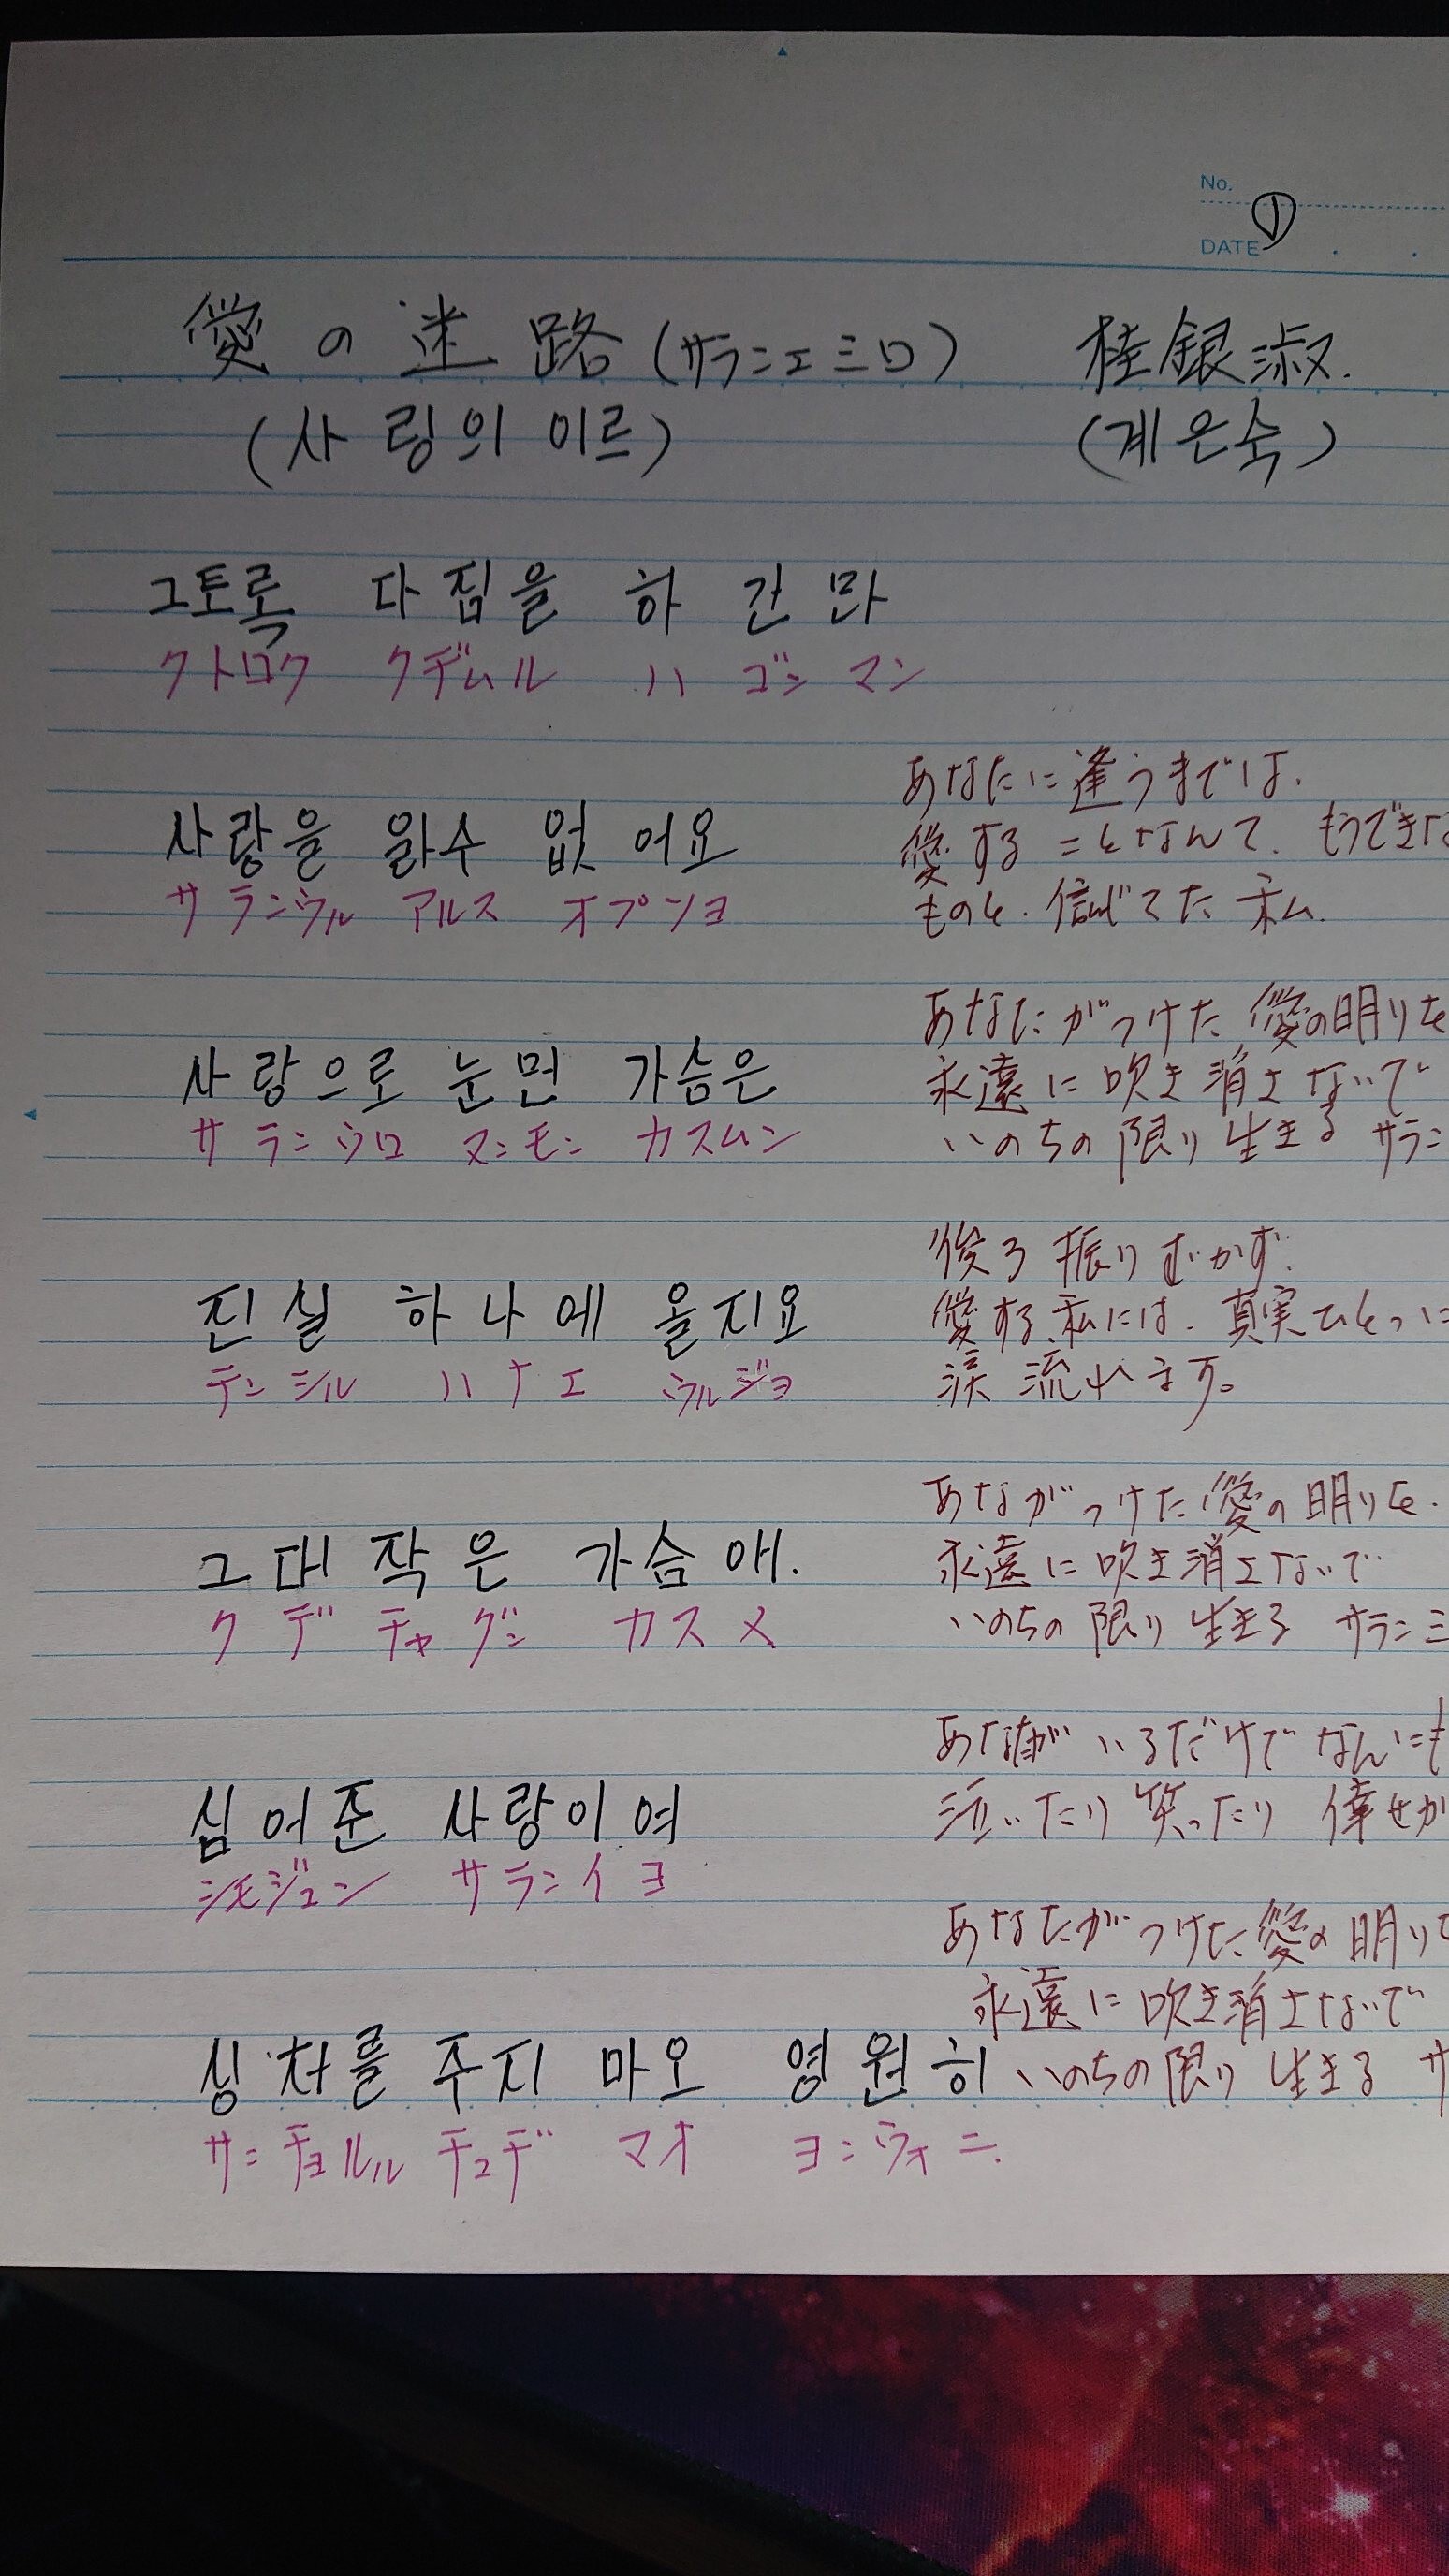 No.
①
DATE
愛の迷路(サランエミロ) 桂銀淑.
(사랑의 이르) (계은숙)
그토록 다짐을 하 건 만
クトロク クヂムル ハ ゴン マン
あなたに逢うまでは.
사랑을 알수 없 어요 愛することなんて. もうできな
サランウル アルス オプソヨ ものと. 信じてた 私.
あなたがつけた 愛の明りを
사랑으로 눈먼 가슴은 永遠に吹き消さないで
サランウロ ヌンモン カスムン いのちの限り 生きる サラン
後ろ振りむかず.
진실 하나에 울지요 愛する私には. 真実ひとつに
チンシル ハナエ ウルジヨ 涙 流れます。
あながつけた愛の明りを.
그대 작은 가슴애. 永遠に吹き消さないで
クデ チャグン カスメ いのちの限り 生きる サランミ
あなたがいるだけで なんにも
심어준 사랑이여 泣いたり 笑ったり 倖せが
シモジュン サランイヨ
あなたがつけた愛の明りを
永遠に吹き消さないで
싱처를 주지 마오 영원히 いのちの限り 生きる サ
サンチョルル チュヂ マオ ヨンウォニ.